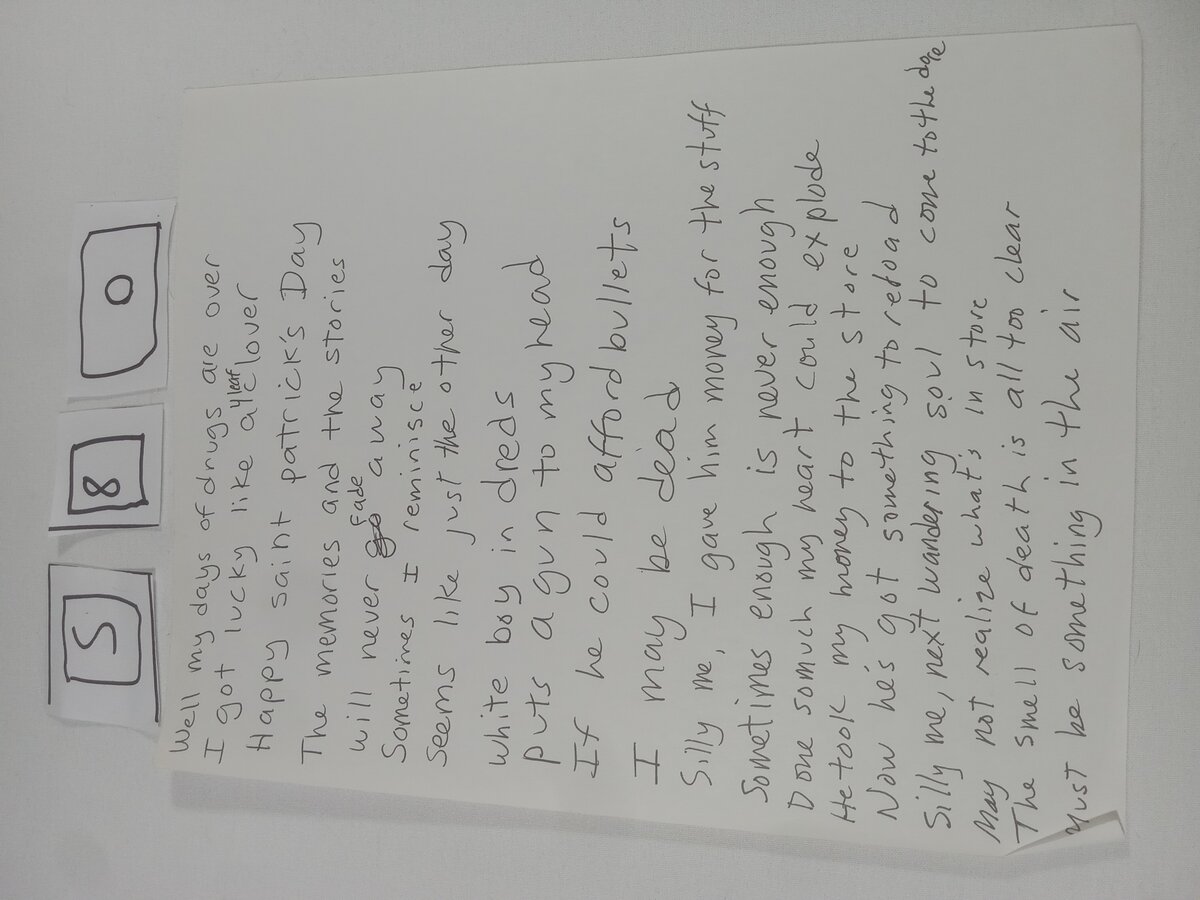 5 8 0
Well my days of drugs are over
I got lucky like a 4 leaf clover
Happy saint patrick's Day
The memories and the stories
will never fade away
Sometimes I reminisce
Seems like just the other day
white boy in dreds
puts a gun to my head
If he could afford bullets
I may be dead
Silly me, I gave him money for the stuff
Sometimes enough is never enough
Done so much my heart could explode
He took my money to the store
Now he's got something to reload
Silly me, next wandering soul to come to the
May not realize what's in store
The smell of death is all too clear
Must be something in the air